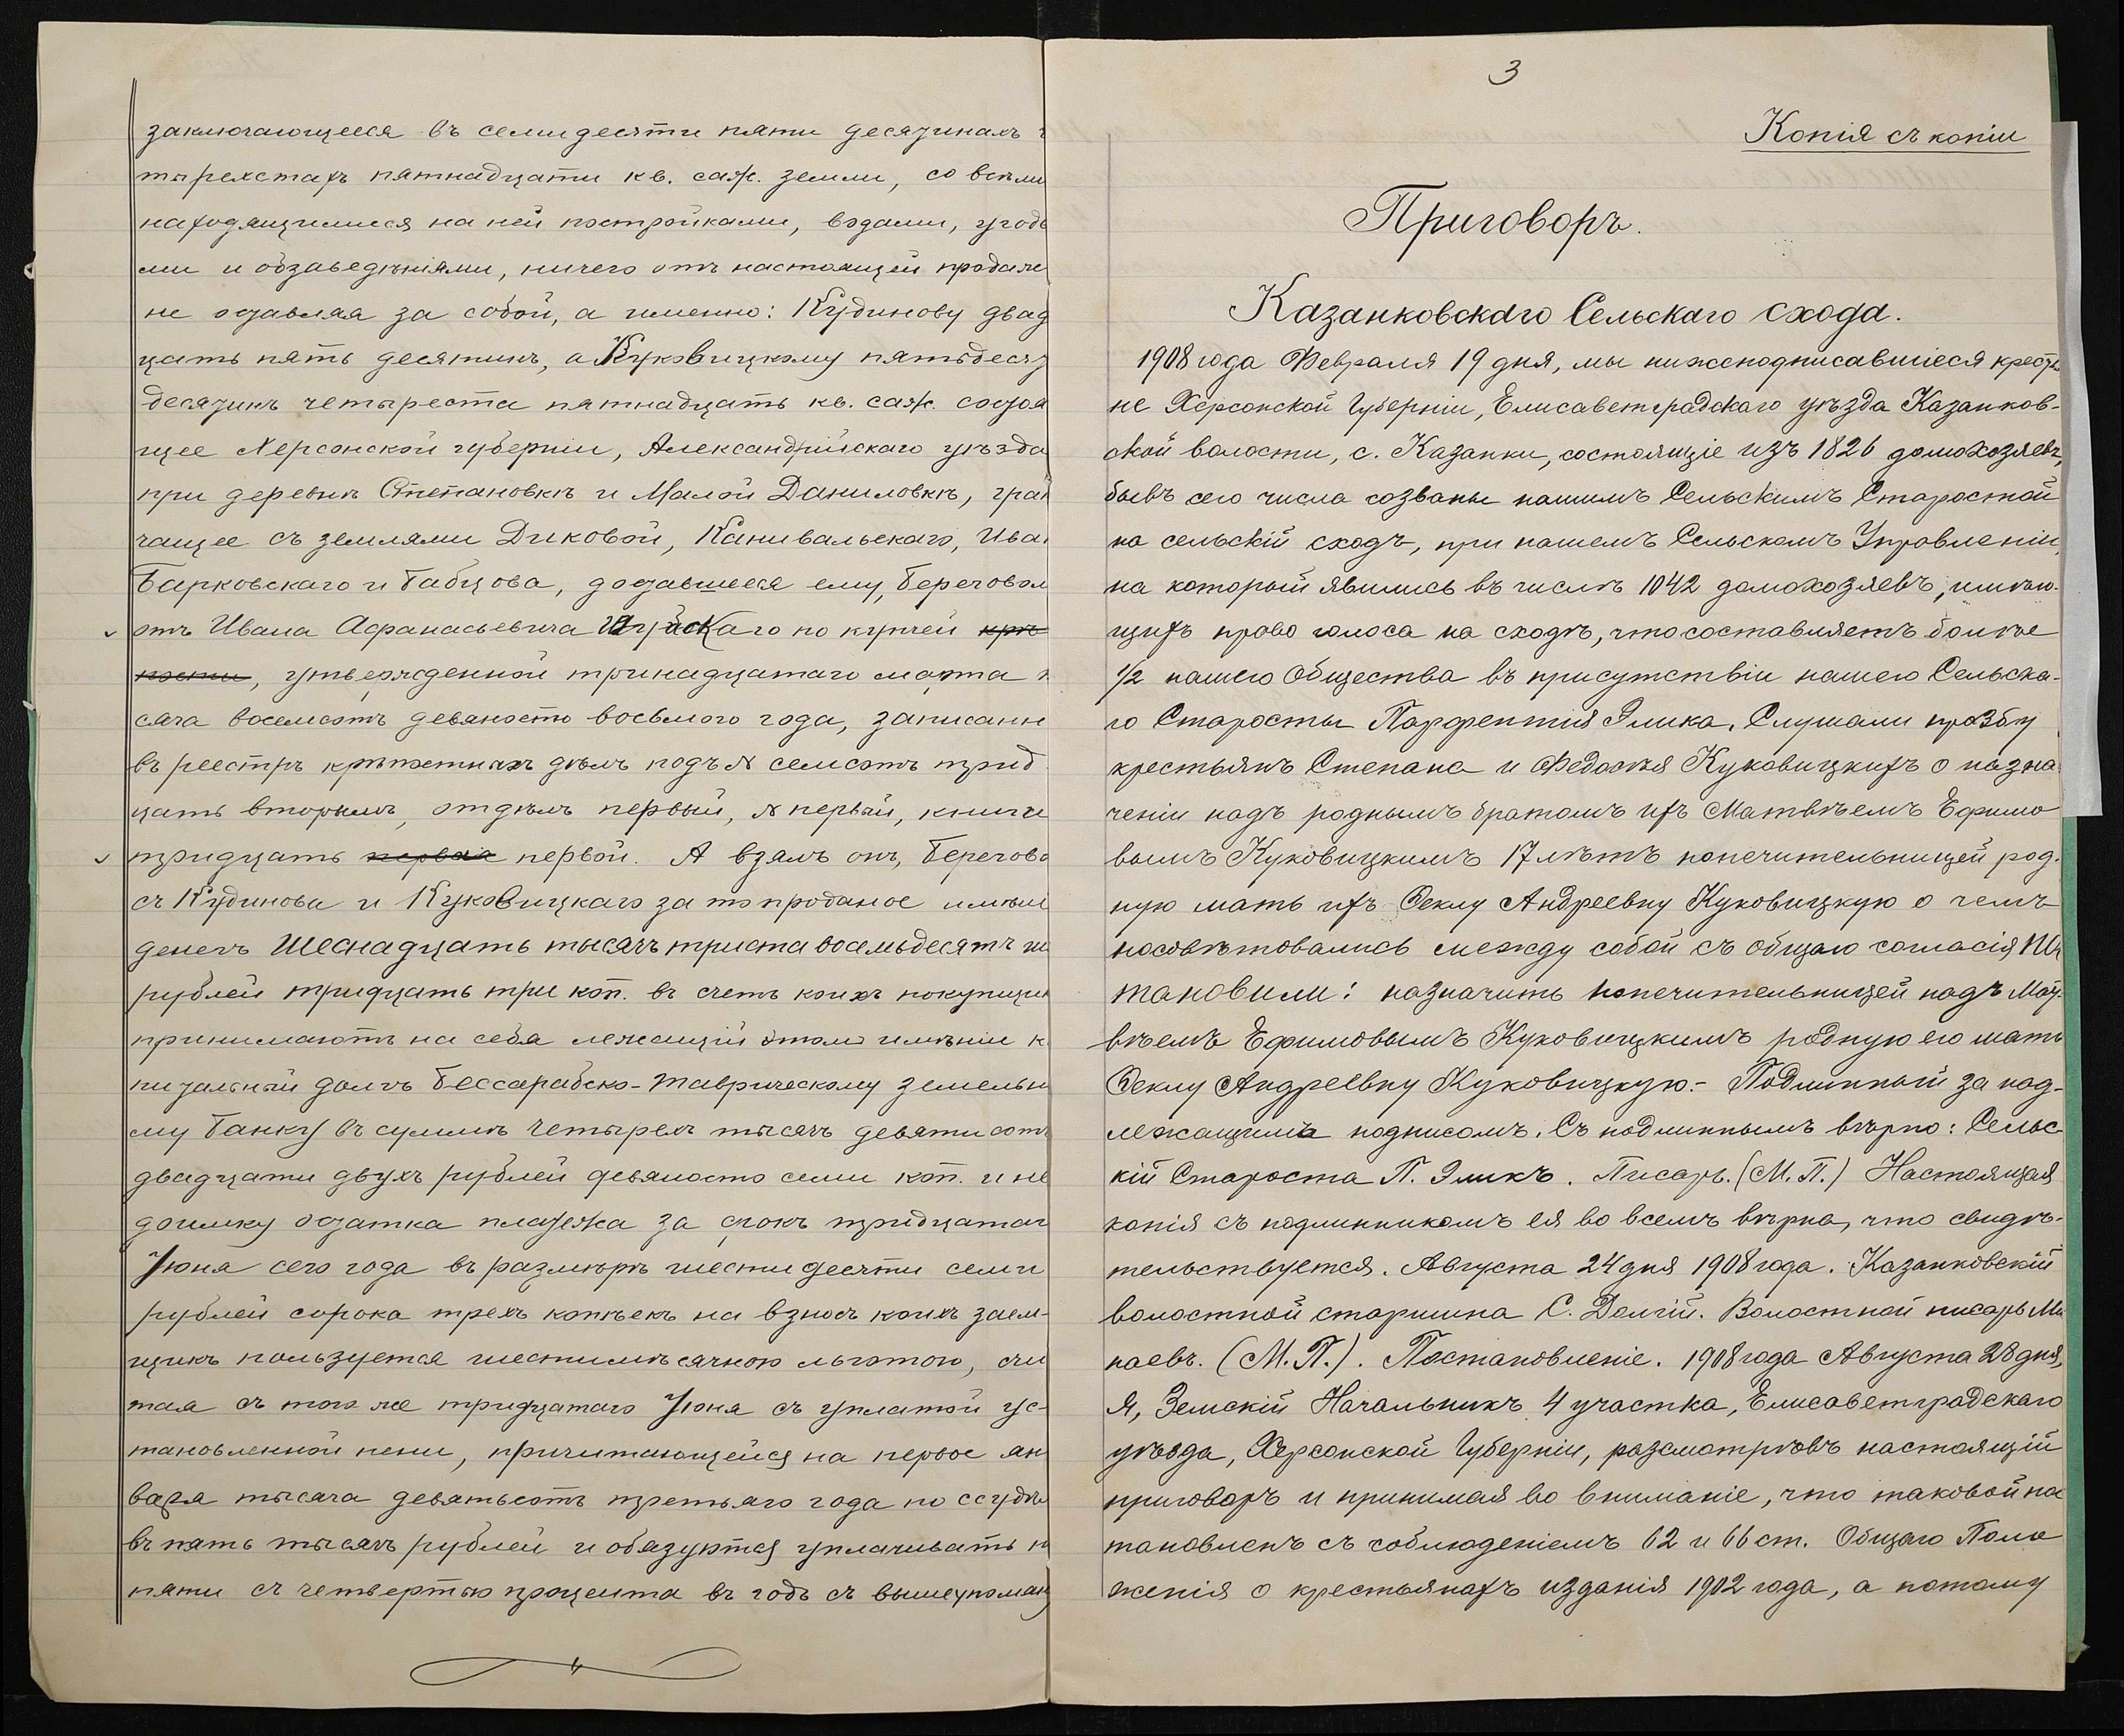 заключающееся въ семидесяти пяти десятинахъ ч
тырехстахъ пятнадцати кв. саж. земли, со всѣми
находящимися на ней постройками, водами, угодь
ями и обзаведѣніями, ничего отъ настоящей продажи
не оставляя за собой, а именно: Кудинову двад
цать пять десятинъ, а Куковицкому пятьдесят
десятинъ четыреста пятнадцать кв. саж. состоя
щее Херсонской губерніи, Александрійскаго уѣзда
при деревнѣ Степановкѣ и Малой Даниловкѣ, гран
чащее съ землями Диковой, Канивальскаго, Ива
Барковскаго и Бабцова, доставшееся ему, Береговом
отъ Ивана Афанасьевича Шуйскаго по купчей крѣ
пости, утвержденной тринадцатаго марта т
сяча восемсотъ девяносто восьмого года, записанн
въ реестръ крѣпостныхъ дѣлъ подъ № семсотъ трид
цать вторымъ, отдѣлъ первый, № первый, книги
тридцать первая первой. А взялъ онъ, Берегово
съ Кудинова и Куковицкаго за то проданое имѣні
денегъ Шеснадцать тысячъ триста восемьдесятъ ше
рублей тридцать три коп. въ счетъ коихъ покупщик
принимаютъ на себя лежащій этомъ имѣніи к
питальный долгъ Бессарабско-Таврическому земельн
му Банку въ суммѣ четырехъ тысячъ девятисотъ
двадцати двухъ рублей девяносто семи коп. и не
доимку остатка платежа за срокъ тридцатаг
Іюня сего года въ размѣрѣ шестидесяти семи
рублей сорока трехъ копѣекъ на взносъ коихъ заем-
щикъ пользуется шестимѣсячною льготою, счи
тая съ того же тридцатаго Іюня съ уплатой ус-
тановленной пени, причитающейся на первое ян
варя тысяча девятьсотъ третьяго года по ссудѣ
въ пять тысячъ рублей и обязуются уплачивать п
пяти съ четвертью процента въ годъ съ вышеупомян
3
Копія съ копіи
Приговоръ.
Казанковскаго Сельскаго схода.
1908 года Февраля 19 дня, мы нижеподписавшіеся крестья
не Херсонской Губерніи, Елисаветградскаго уѣзда Казанков-
ской волости, с. Казанки, состоящіе изъ 1826 домохозяевъ,
бывъ сего числа созваны нашимъ Сельскимъ Старостой
на сельскій сходъ, при нашемъ Сельскомъ Управленіи,
на который явились въ числѣ 1042 домохозяевъ, имѣю-
щихъ право голоса на сходѣ, что составляетъ болѣе
1/2 нашего Общества въ присутствіи нашего Сельска-
го Старосты Парфентія Элика, Слушали прозбу
крестьянъ Степана и Федосія Куковицкихъ о назна
ченіи надъ роднымъ братомъ ихъ Матвѣемъ Ефимо
вымъ Куковицкимъ 17 лѣтъ попечительницей род-
ную мать ихъ Феклу Андреевну Куковицкую о чемъ
посовѣтовались между собой съ общаго согласія пос
тановили: назначить попечительницей надъ Мат-
вѣемъ Ефимовымъ Куковицкимъ родную его мать
Феклу Андреевну Куковицкую.- Подлинный за над-
лежащимъ подписомъ. Съ подлиннымъ вѣрно: Сельс
кій Староста П. Эликъ. Писарь. (М.П.) Настоящая
копія съ подлинникомъ ея во всемъ вѣрна, что свидѣ-
тельствуется. Августа 24 дня 1908 года. Казанковскій
волостной старшина С. Долгій. Волостной писарь Ми
наевъ. (М.П.). Постановленіе. 1908 года Августа 28 дня,
Я, Земскій Начальникъ 4 участка, Елисаветградскаго
уѣзда, Херсонской Губерніи, разсмотрѣвъ настоящій
приговоръ и принимая во вниманіе, что таковой пос
тановленъ съ соблюденіемъ 62 и 66 ст. Общаго Поло
женія о крестьянахъ изданія 1902 года, а потому